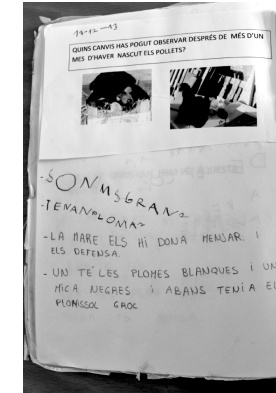 14-12-13
QUINS CANVIS HAS POGUT OBSERVAR DESPRÉS DE MÉS D'UN
MES D'HAVER NASCUT ELS POLLETS?
-SONMSGRANS
-TENANPLOMAS
-LA MARE ELS HI DONA MENJAR I
ELS DEFENSA.
-UN TÉ LES PLOMES BLANQUES I UN
MICA NEGRES I ABANS TENIA EL
PLOMISSOL GROC